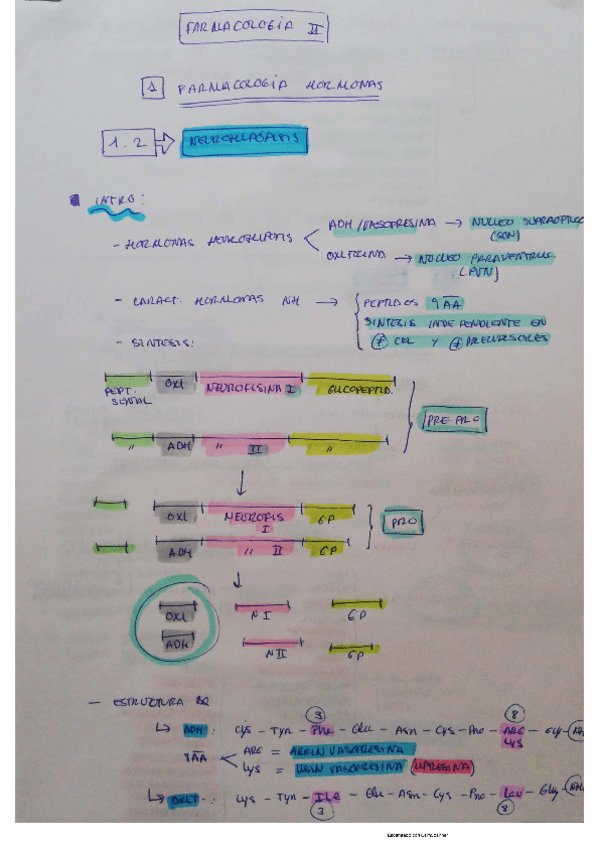 FARMACOLOGÍA II
1 FARMACOLOGÍA HORMONAS
1.2 NEUROHIPÓFISIS
INTRO:
- HORMONAS NEUROHIPÓFISIS
ADH/VASOPRESINA → NÚCLEO SUPRAÓPTICO
(SON)
OXITOCINA → NÚCLEO PARAVENTRIC.
(PVN)
- CARACT. HORMONAS NH → PEPTIDOS 9 AA
SÍNTESIS INDEPENDIENTE EN
≠ CEL Y ≠ PRECURSORES
- SÍNTESIS:
PEPT. SEÑAL OXI NEUROFISINA I GLICOPEPTID.
PRE PRO
" ADH " II "
OXI NEUROFIS I GP
PRO
ADH " II GP
OXI N I GP
ADH N II GP
- ESTRUCTURA BQ
3 8
↳ ADH: Cys - Tyr - Phe - Glu - Asn - Cys - Pro - ARG - Gly - NH
LYS
9AA ARG = ARGIN VASOPRESINA
LYS = LISIN VASOPRESINA (LIPRESINA)
↳ OXIT.: Cys - Tyr - Ile - Glu - Asn - Cys - Pro - Leu - Gly - NH
3 8
Escaneado con CamScanner